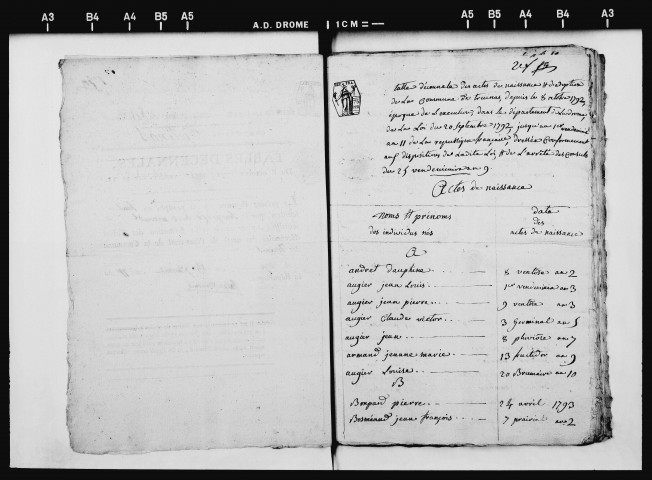 A3 B4 A4 B5 A5 A.D. DROME 1 CM A5 B5 A4 B4 A3
table décennale des actes de naissance & d'adoption
de la Commune de tournas, depuis le 8 octobre 1792
époque de l'execution, dans le département de la drome
de la Loi du 20 septembre 1792, jusqu'au 1er vendemiaire
an 11 de la republique française, dressée conformement
aux dispositions de ladite Loi, & de l'arrêté des Consuls
du 25 vendemiaire an 9.
Actes de naissance
Noms & prénoms
des individus nés
data
des
actes de naissance
A
andret dauphine 8 ventose an 2
augier jean Louis 1er vendemiaire an 3
augier jean pierre 9 ventose an 3
augier Claude victor 3 Germinal an 5
augier jean 8 pluviose an 7
armand jeanne marie 13 fructidor an 9
augier Louise 20 Brumaire an 10
B
Bompard pierre 24 avril 1793
jean françois 7 prairial an 2